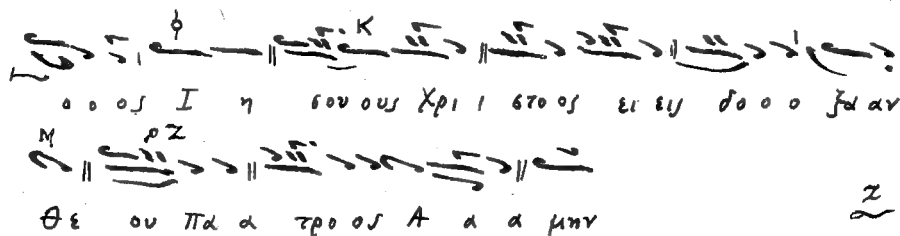 ο ο ος Ι η σου ους Χρι ι στο ος ει εις δο ο ο ξα αν
Θε ου πα α τρο ος Α α α μην